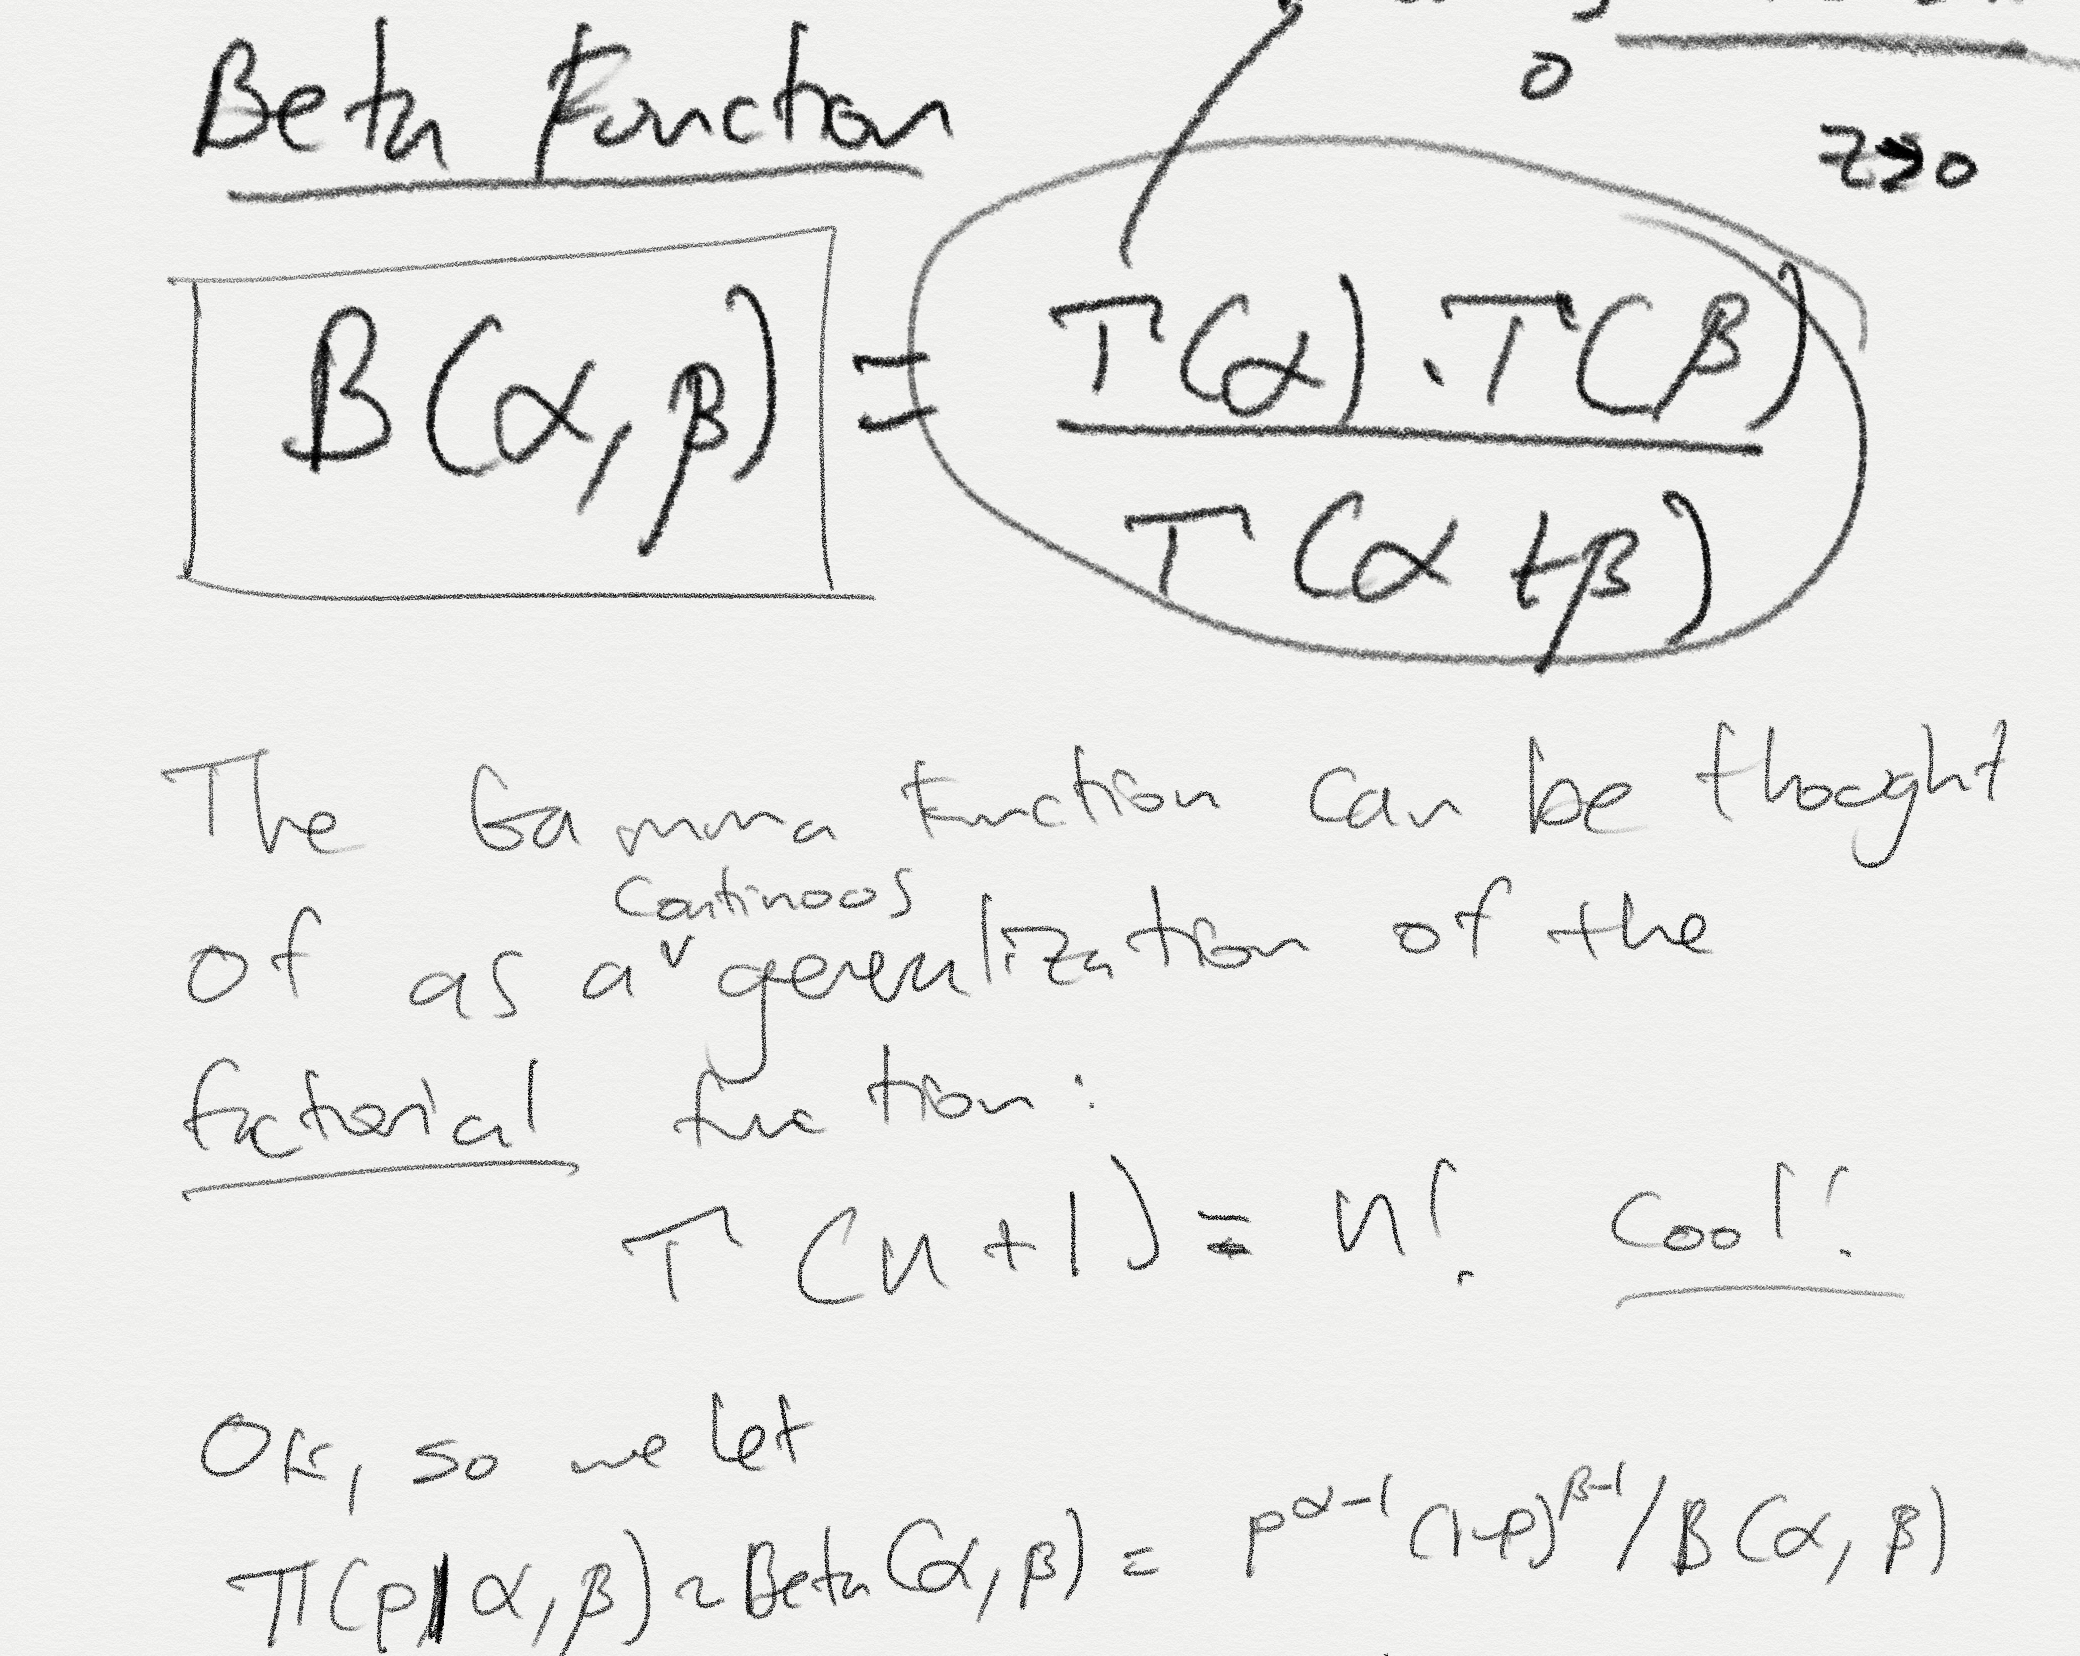 0
Beta Function
z→0
B(α, β) = Γ(α) · Γ(β) / Γ(α + β)
The Gamma function can be thought
continuous
of as a ᵛ generalization of the
factorial function:
Γ(n + 1) = n! Cool!
OK, so we let
π(p|α, β) ~ Beta(α, β) = p^α-1 (1-p)^β-1 / B(α, β)